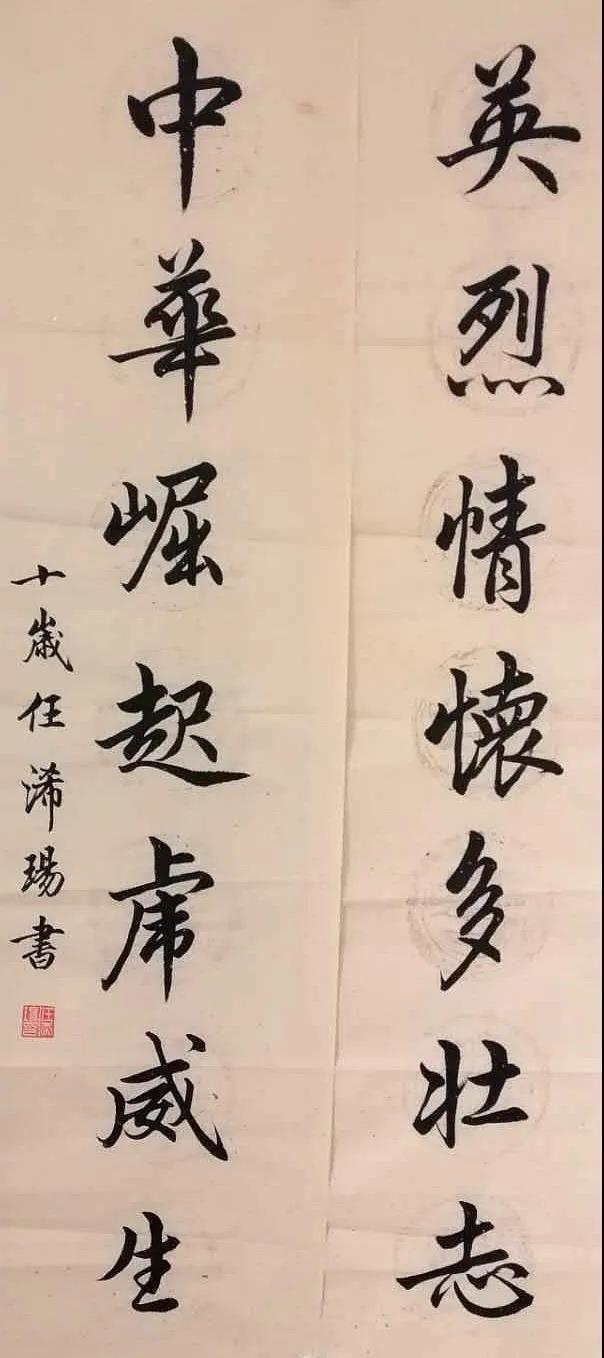 英烈情懷多壯志
中華崛起虎威生
十歲任浠瑒書